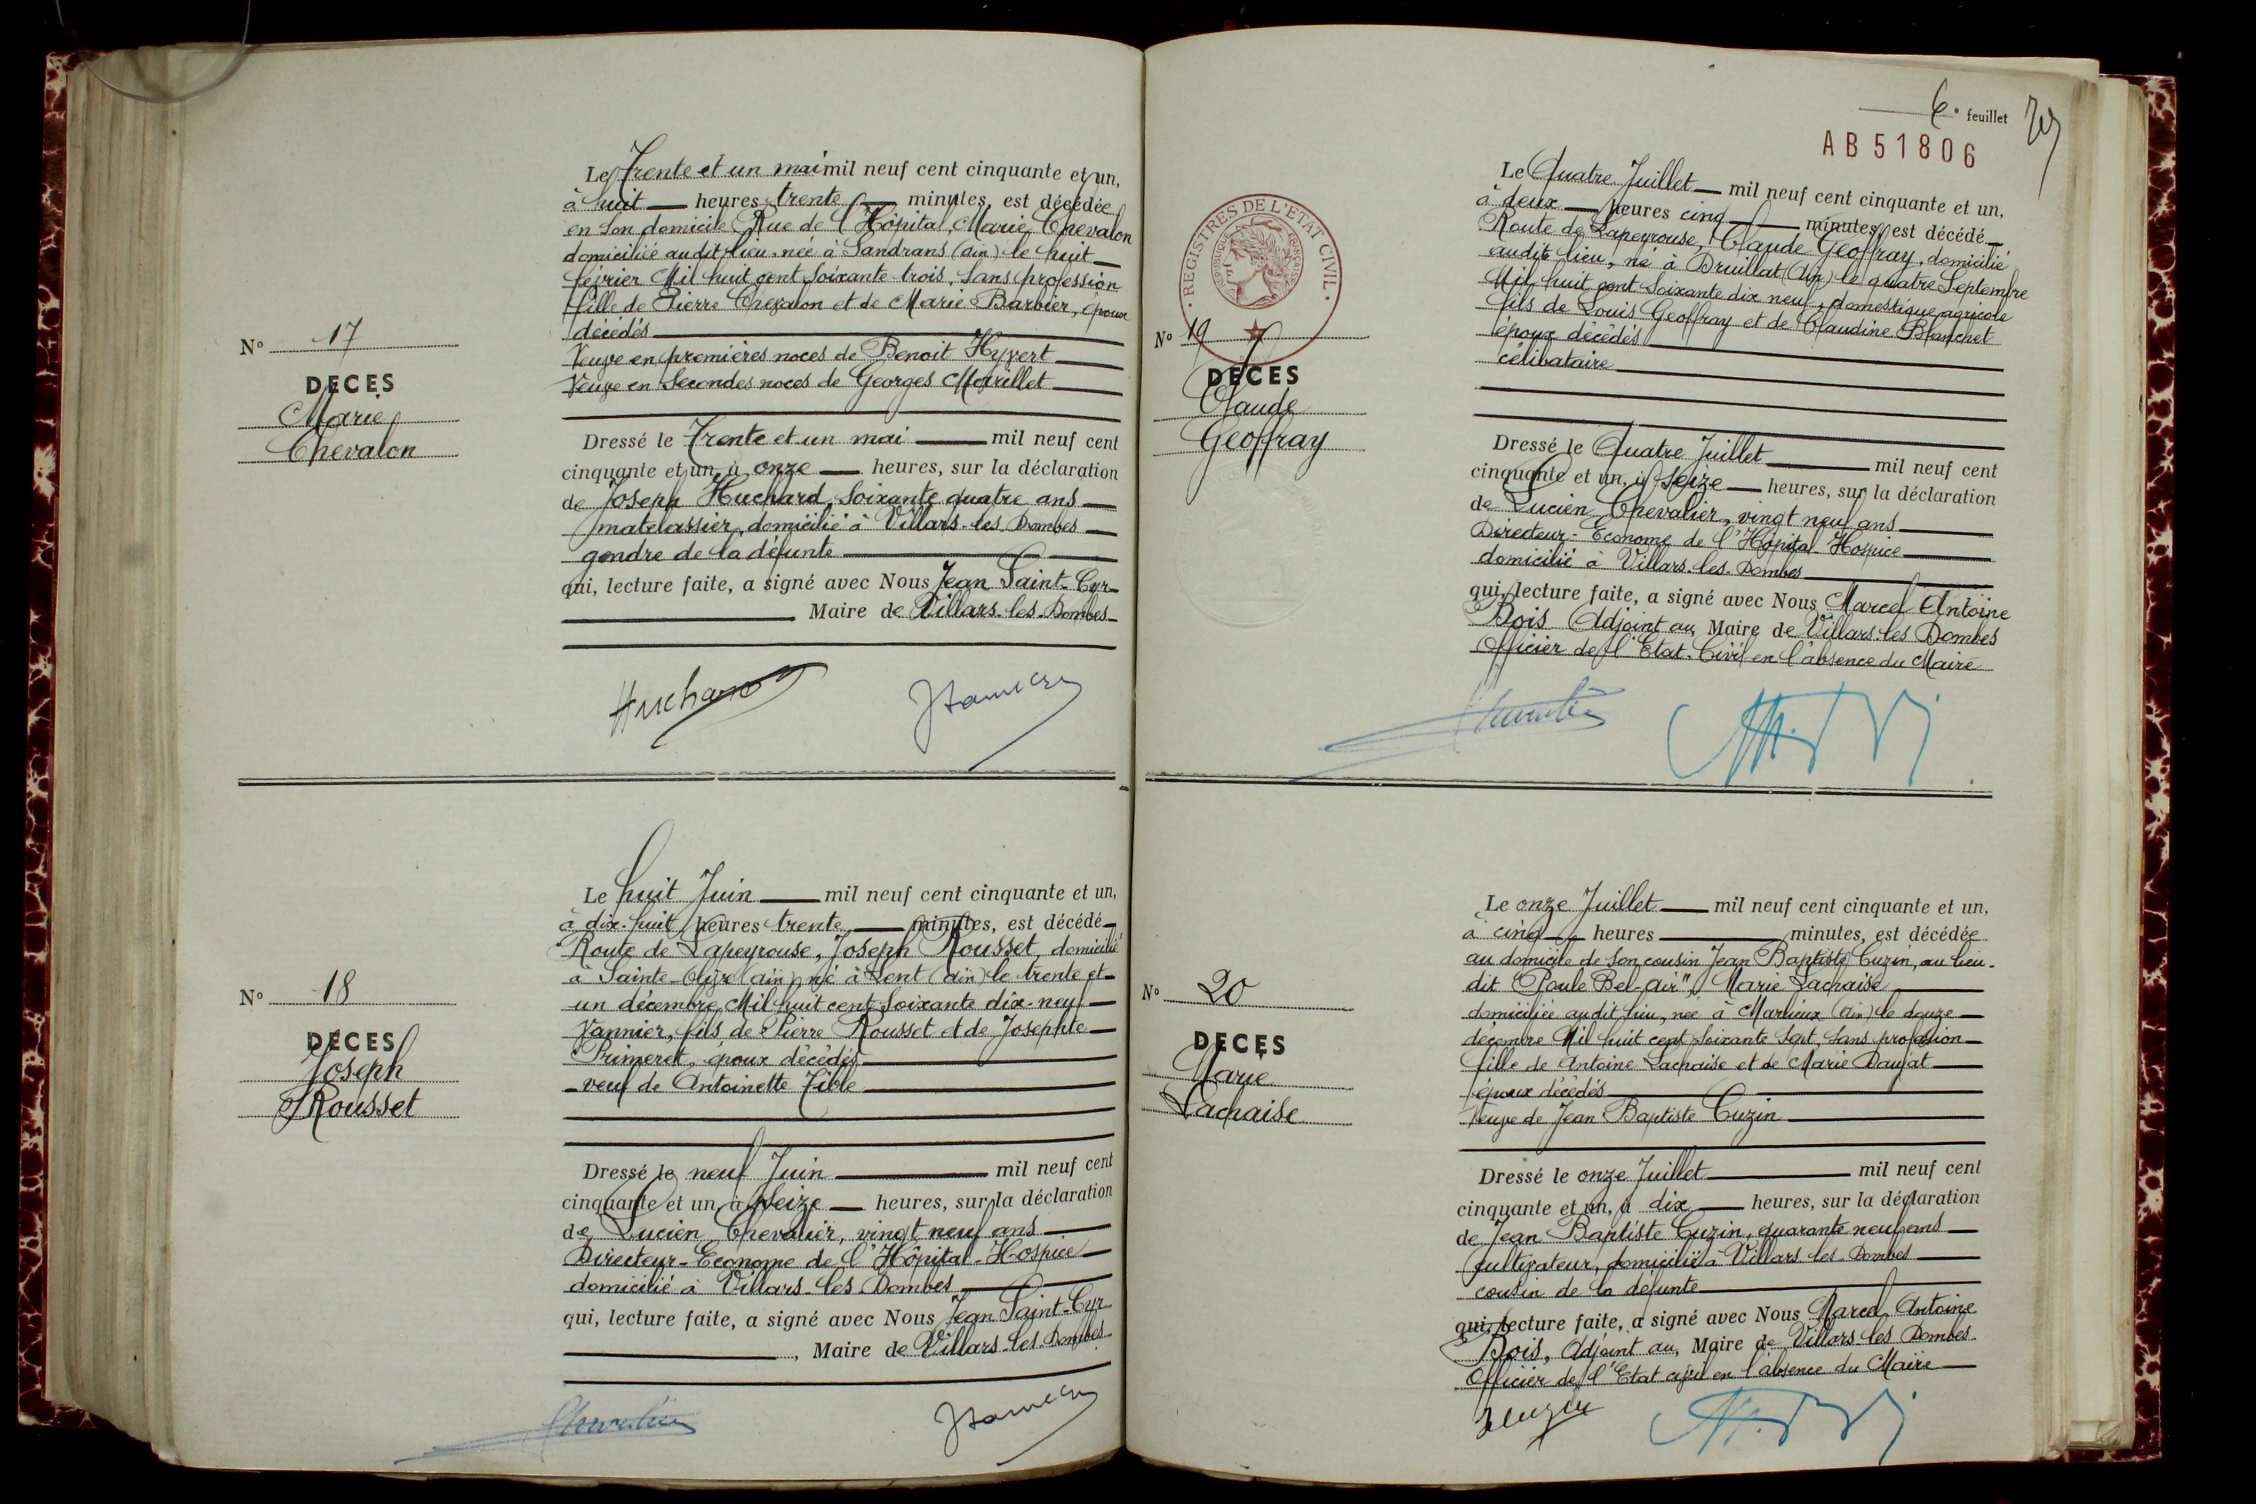 Le Trente et un mai mil neuf cent cinquante et un,
à huit heures trente minutes, est décédée
en son domicile Rue de l'Hôpital, Marie Chevalon
domiciliée audit lieu, née à Sandrans (Ain) le huit
février Mil huit cent soixante trois, sans profession
fille de Pierre Chevalon et de Marie Barbier, époux
décédés
Veuve en premières noces de Benoit Hyvert
Veuve en secondes noces de Georges
N° 17
DECES
Marie
Chevalon
Dressé le Trente et un mai mil neuf cent
cinquante et un, à onze heures, sur la déclaration
de Joseph Huchard, soixante quatre ans
matelassier, domicilié à Villars-les-Dombes
gendre de la défunte
qui, lecture faite, a signé avec Nous Jean Saint-Cyr
Maire de Villars-les-Dombes
Huchard
Le huit Juin mil neuf cent cinquante et un,
à dix-huit heures trente minutes, est décédé
Route de Lapeyrouse, Joseph Rousset, domicilié
à Sainte-Olive (ain) né à Lent (ain) le trente et
un décembre Mil huit cent soixante dix-neuf
Vannier, fils de Pierre Rousset et de Josephte
époux décédés
veuf de Antoinette Tible
N° 18
DECES
Joseph
Rousset
Dressé le neuf Juin mil neuf cent
cinquante et un, à seize heures, sur la déclaration
de Lucien Chevalier, vingt neuf ans
Directeur-Econome de l'Hôpital-Hospice
domicilié à Villars-les-Dombes
qui, lecture faite, a signé avec Nous Jean Saint-Cyr
, Maire de Villars-les-Dombes
6e feuillet
AB51806
REGISTRES DE L'ETAT CIVIL
REPUBLIQUE FRANÇAISE
Le Quatre Juillet mil neuf cent cinquante et un,
à deux heures cinq minutes, est décédé
Route de Lapeyrouse, Claude Geoffray, domicilié
audit lieu, né à Druillat (Ain) le quatre Septembre
Mil huit cent soixante dix neuf, domestique agricole
fils de Louis Geoffray et de Claudine Blanchet
époux décédés
célibataire
N° 19
DECES
Claude
Geoffray
Dressé le Quatre Juillet mil neuf cent
cinquante et un, à seize heures, sur la déclaration
de Lucien Chevalier, vingt neuf ans
Directeur-Econome de l'Hôpital-Hospice
domicilié à Villars-les-Dombes
qui, lecture faite, a signé avec Nous Marcel Antoine
Bois Adjoint au Maire de Villars-les Dombes
Officier de l'Etat-Civil en l'absence du Maire
Le onze Juillet mil neuf cent cinquante et un,
à cinq heures minutes, est décédée
au domicile de son cousin Jean Baptiste Cuzin, au lieu-
dit "Poule Bel-air", Marie Lachaise
domiciliée audit lieu, née à Marlieux (ain) le douze
décembre Mil huit cent soixante sept, sans profession
fille de Antoine Lachaise et de Marie Daujat
époux décédés
Veuve de Jean Baptiste Cuzin
N° 20
DECES
Marie
Lachaise
Dressé le onze Juillet mil neuf cent
cinquante et un, à dix heures, sur la déclaration
de Jean Baptiste Cuzin, quarante neuf ans
cultivateur, domicilié à Villars-les-Dombes
cousin de la défunte
qui, lecture faite, a signé avec Nous Marcel Antoine
Bois, Adjoint au, Maire de Villars les Dombes
Officier de l'Etat civil en l'absence du Maire